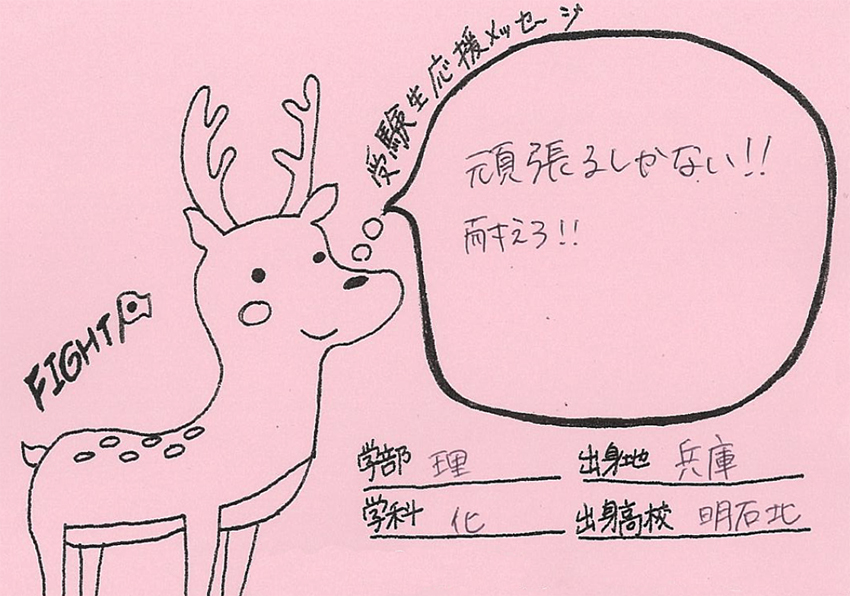 受験生応援メッセージ
頑張るしかない!!
耐えろ!!
FIGHT
学部 理
出身地 兵庫
学科 化
出身高校 明石北